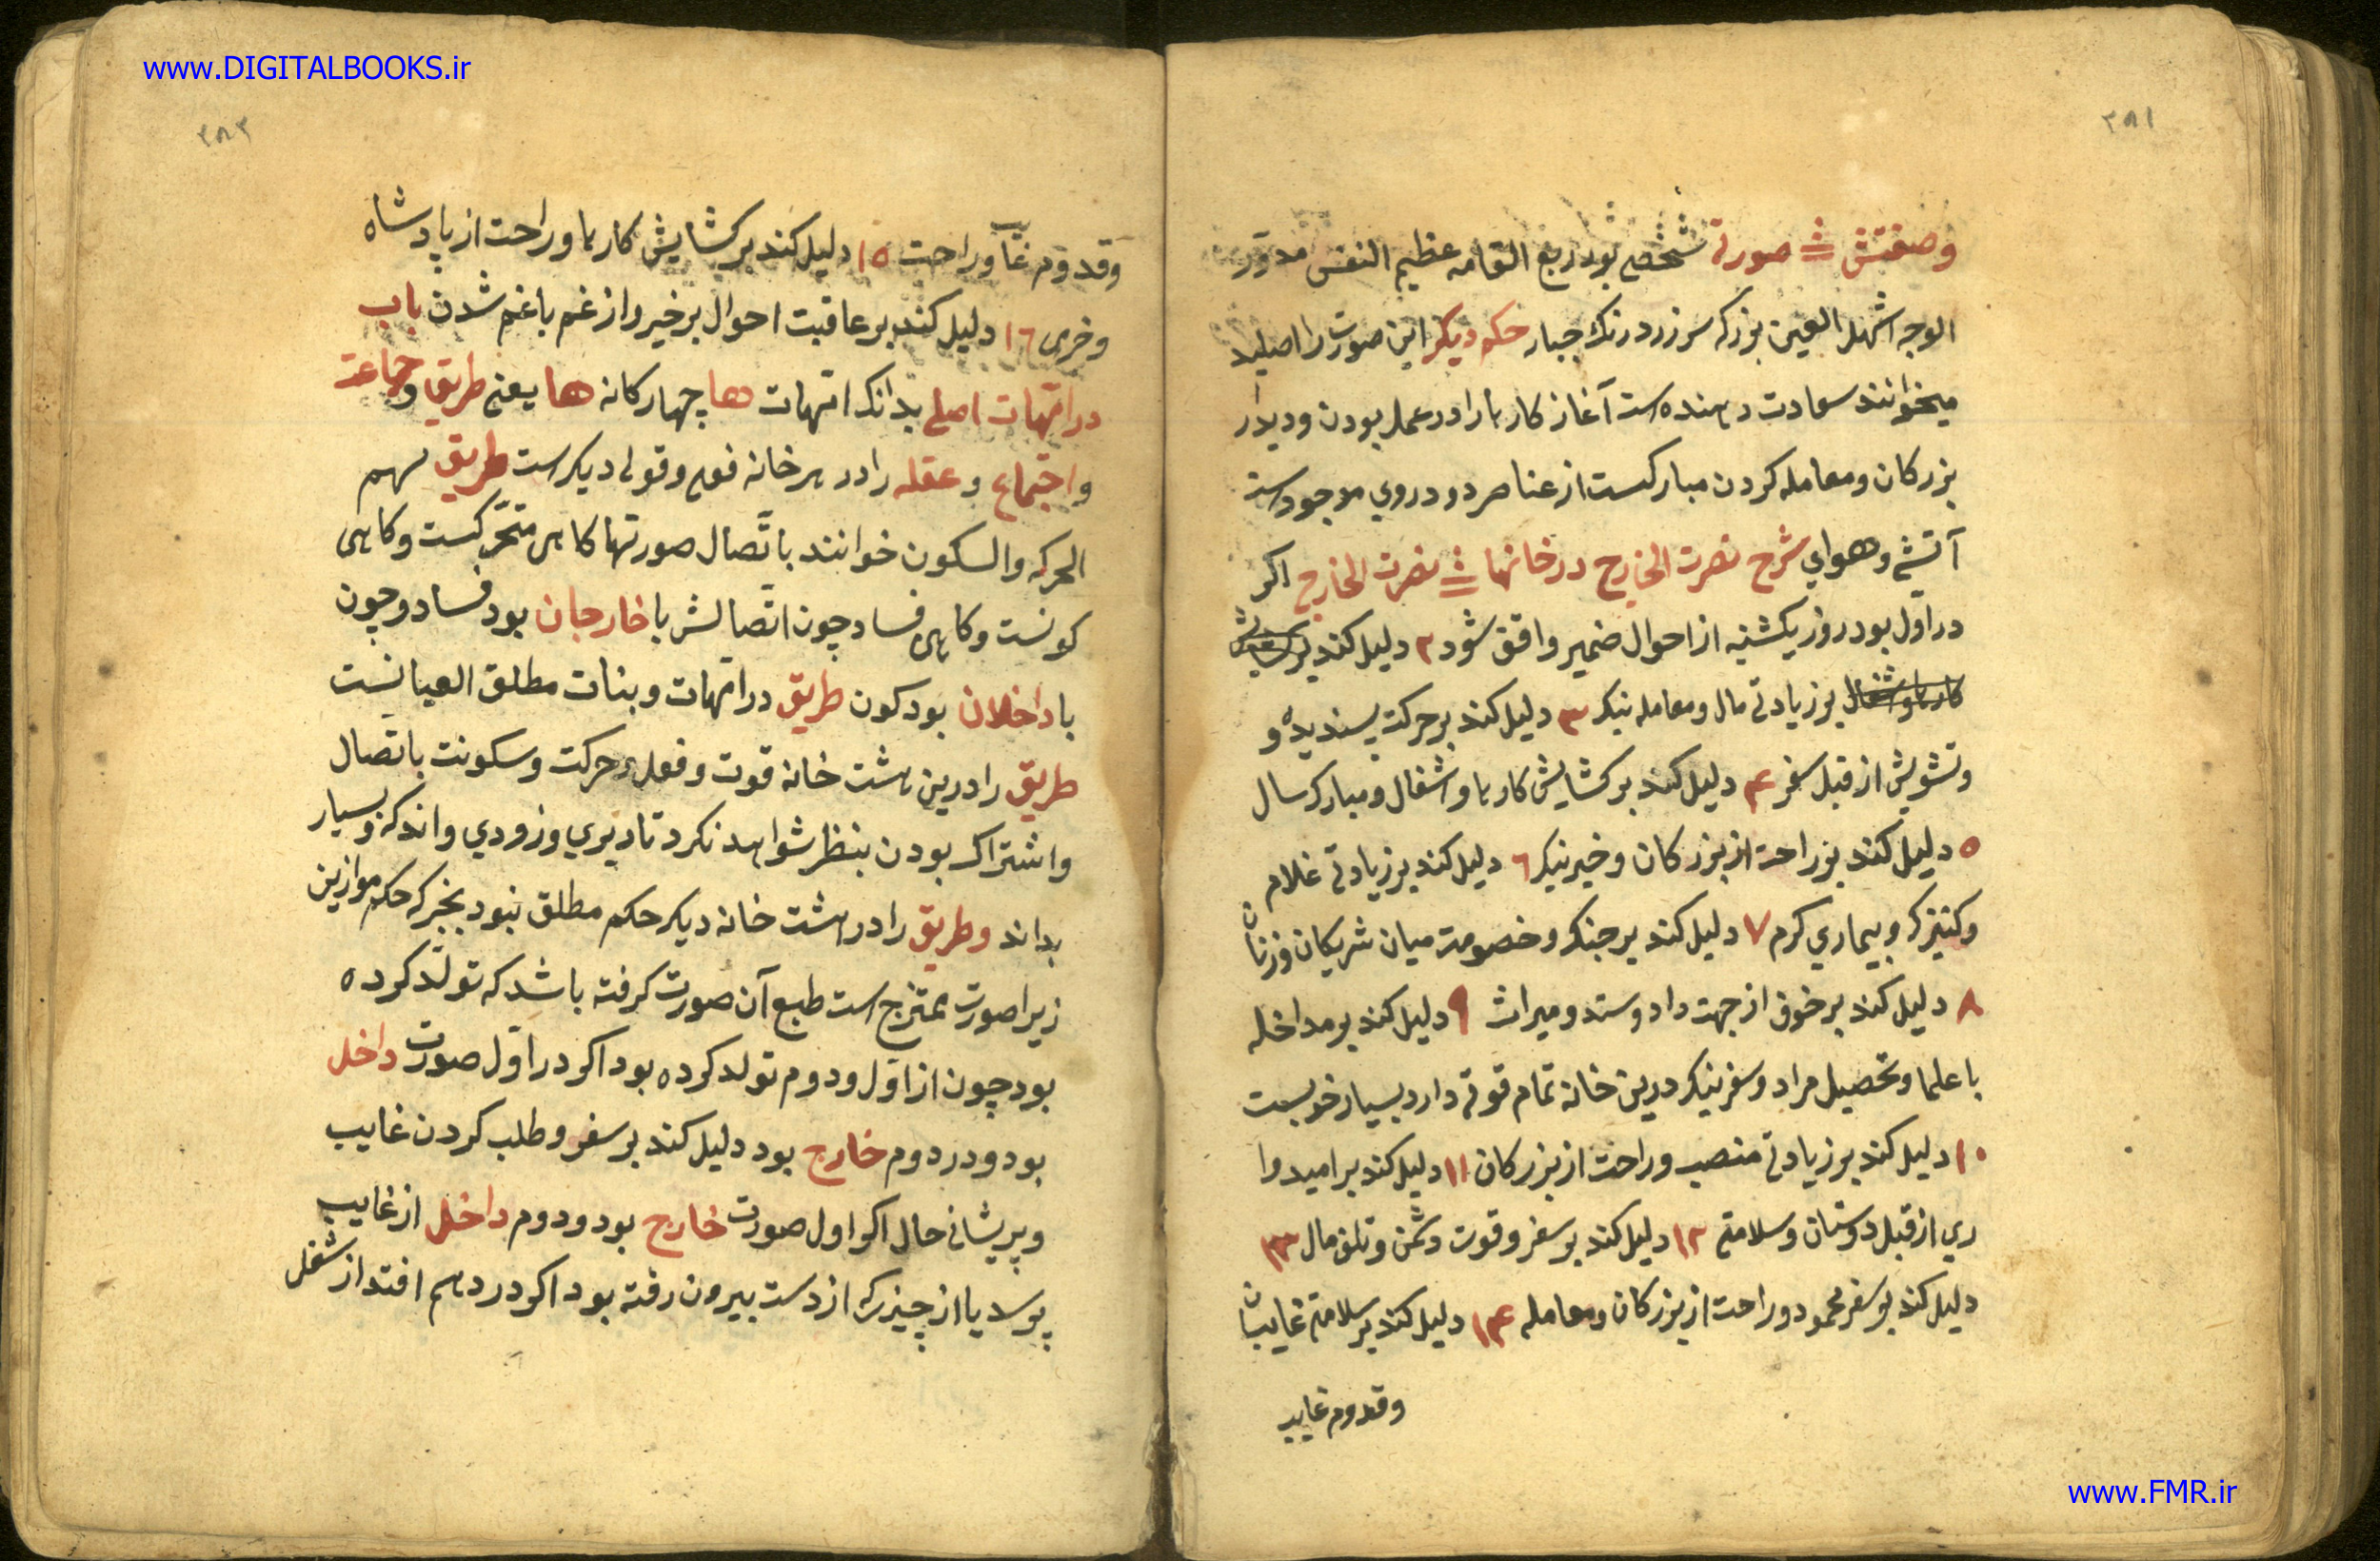 www.DIGITALBOOKS.ir
۳۸۱
وصفتش صورتی شخصی بود ربع القامه عظیم النفس مدوّر
الوجه اشهل العین بزرک سر زرد رنک جبار حکم دیکر این صورت را اصلید
میخوانند سعادت دهنده است آغاز کارها را در عمل بودن و دیدار
بزرکان و معامله کردن مبارکست از عناصر دو در وی موجود است
آتشی و هوای شرح نصرت الخارج در خانها نصرت الخارج اکر
در اوّل بود روز یکشنبه از احوال ضمیر واقف شود ۲ دلیل کند بر
کارها و اشغال بر زیادتی مال و معامله نیک ۳ دلیل کند بر حرکت پسندیده و
و تشویش از قبل سفر ۴ دلیل کند بر کشایش کارها و اشغال و مبارک سال
۵ دلیل کند بر راحت از بزرکان و خیر نیک ۶ دلیل کند بر زیادتی غلام
و کنیزک و بیماری کرم ۷ دلیل کند بر جنک و خصومت میان شریکان و زنان
۸ دلیل کند بر خوف از جهت داد و ستد و میراث ۹ دلیل کند بر مداخله
با علما و تحصیل مراد و سفر نیک درین خانه تمام قوتی دارد بسیار خوبست
۱۰ دلیل کند بر زیادتی منصب و راحت از بزرکان ۱۱ دلیل کند بر امیدوا
ری از قبل دوستان و سلامتی ۱۲ دلیل کند بر سفر و قوت دشمن و تلف مال ۱۳
دلیل کند بر سفر محمود و راحت از بزرکان و معامله ۱۴ دلیل کند بر سلامتی غایبان
و قدوم غایب
۳۸۲
و قدوم غایب و راحت ۱۵ دلیل کند بر کشایش کارها و راحت از پادشاه
و خرمی ۱۶ دلیل کند بر عاقبت احوال بر خیر و از غم باغم شدن باب
در امّهات اصلی بدانک امّهات ها چهارکانه ها یعنی طریق و جماعت
و اجتماع و عقله را در هر خانه فعلی و قولی دیکر است طریق سهم
الحرکه والسکون خوانند باتّصال صورتها کاهی متحرّکست و کاهی
کونست و کاهی فساد چون اتّصالش با خارجان بود فساد و چون
با داخلان بود کون طریق در امّهات و بنات مطلق العیانست
طریق را درین هشت خانه قوت و فعل و حرکت و سکونت باتّصال
و اشتراک بودن بنظر شواهد نکرد تا دیری و زودی و اندک و بسیار
بداند و طریق را در هشت خانه دیکر حکم مطلق نبود بجز که حکم موازین
زیرا صورت ممتزج است طبع آن صورت کرفته باشد که تولّد کرده
بود چون از اوّل و دوم تولد کرده بود اکر در اوّل صورت داخل
بود و در دوم خارج بود دلیل کند بر سفر و طلب کردن غایب
و پریشانی حال اکر اول صورت خارج بود و دوم داخل از غایب
پرسد یا از چیزی که از دست بیرون رفته بود اکر در دهم افتد از شغل
www.FMR.ir